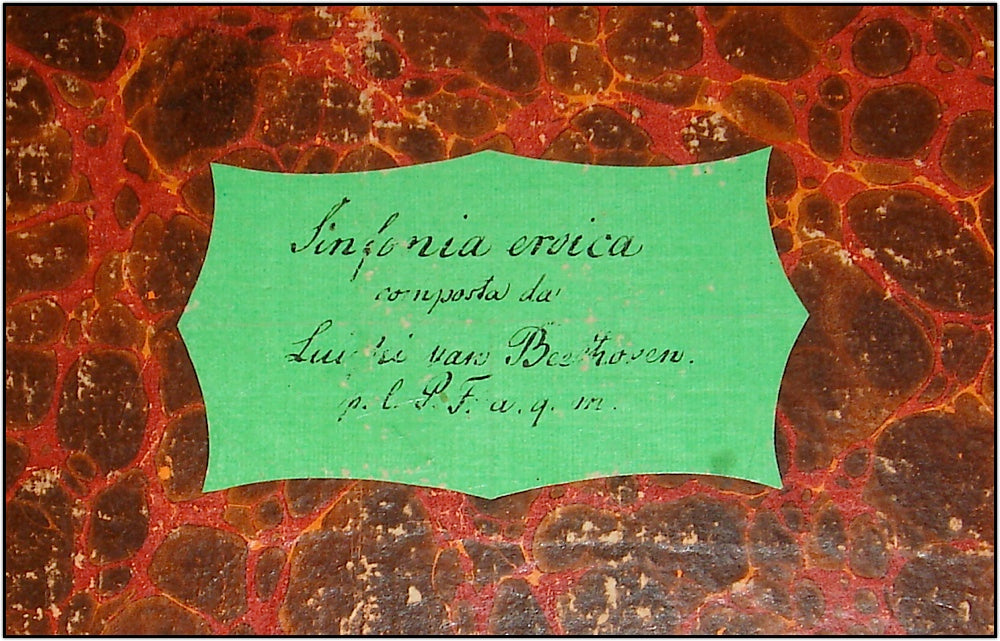 Sinfonia eroica
composta da
Luighi van Beethoven.
p. l. P. F. a. q. m.